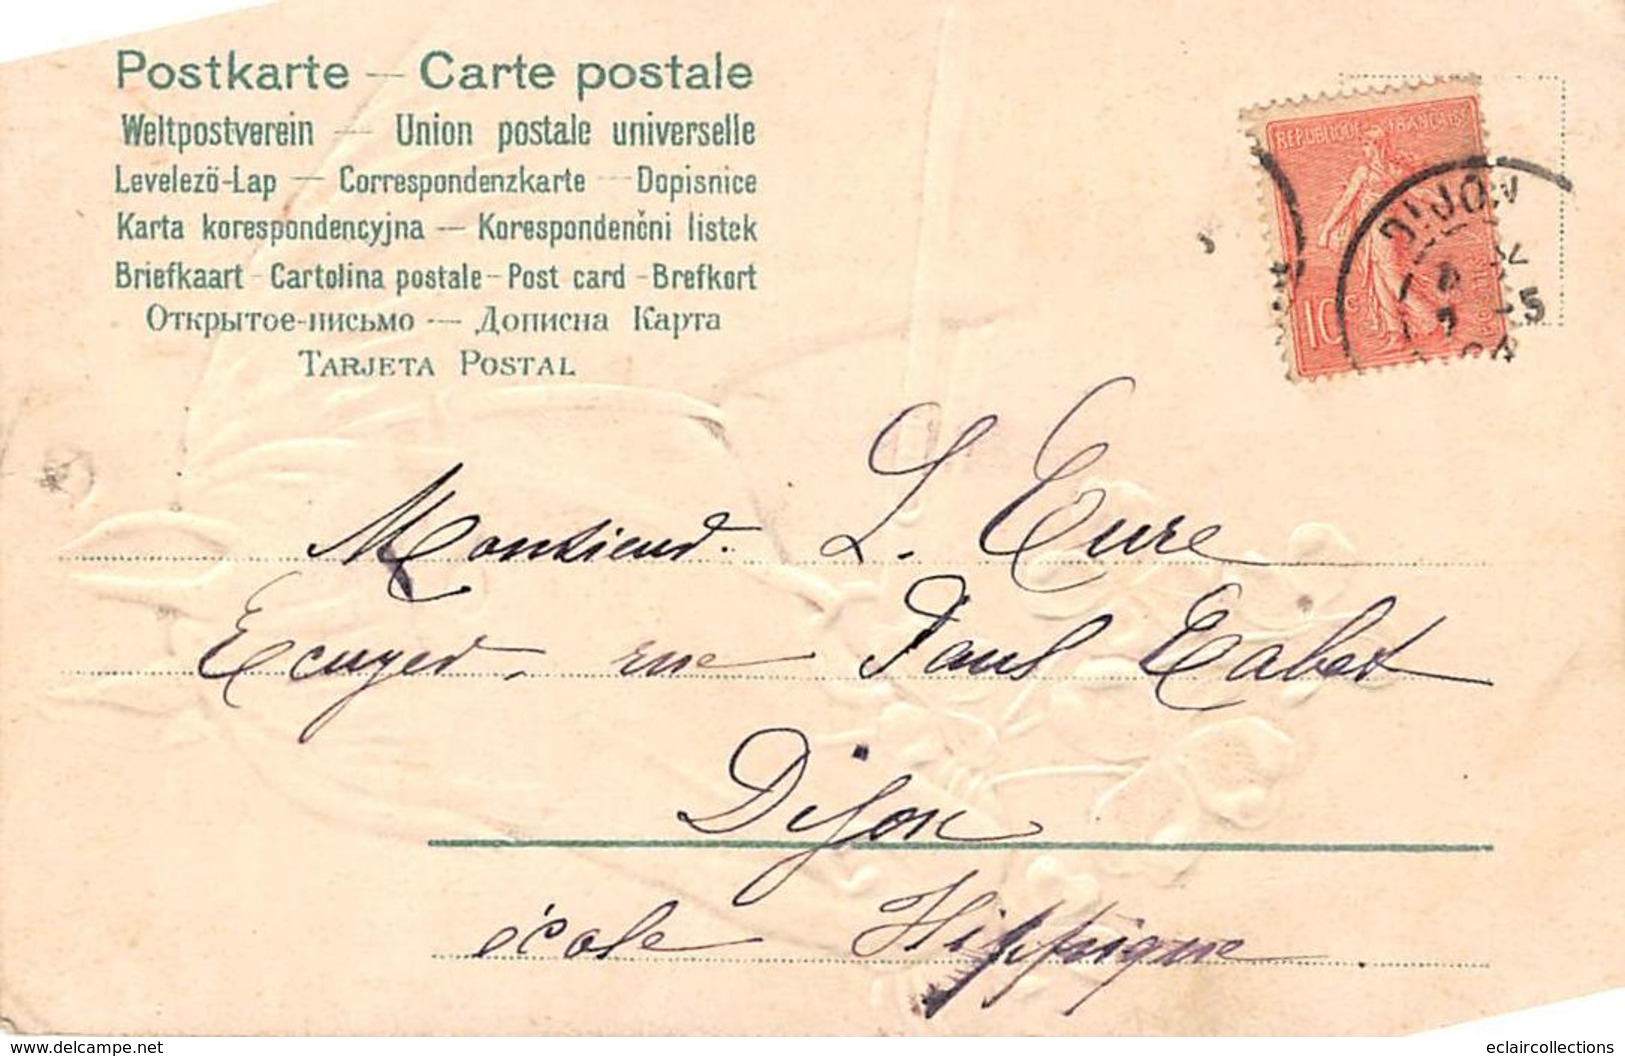 Postkarte — Carte postale
Weltpostverein — Union postale universelle
Levelezö-Lap — Correspondenzkarte — Dopisnice
Karta korespondencyjna — Korespondenčni listek
Briefkaart - Cartolina postale - Post card - Brefkort
Открытое-письмо — Дописна Карта
TARJETA POSTAL
REPUBLIQUE FRANÇAISE
10c
DIJON
Monsieur. L. Eure
Ecuyer, rue Paul Cabet
Dijon
école Hippique
delcampe.net
eclaircollections